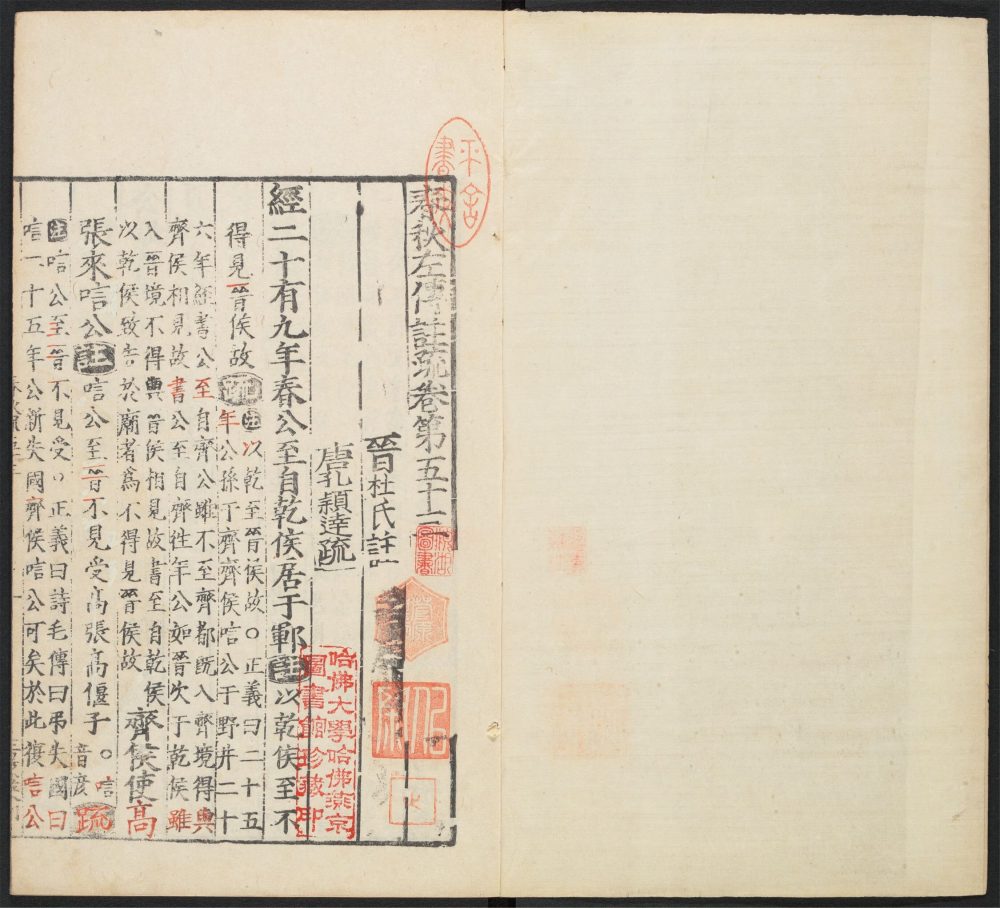 春秋左傳註疏卷第五十三
晉杜氏註
唐孔穎達疏
經二十有九年春公至自乾侯居于鄆註以乾侯至不
得見晉侯故疏註以乾至晉侯故○正義曰二十五
年公孫于齊齊侯唁公于野井二十
六年經書公至自齊公雖不至齊都既入齊境得與
齊侯相見故書公至自齊往年公如晉次于乾侯雖
入晉境不得與晉侯相見故書至自乾侯
以乾侯致告於廟者為不得見晉侯故齊侯使高
張來唁公註唁公至晉不見受高張高偃子○唁音彥疏
註唁公至晉不見受○正義曰詩毛傳曰弔失國曰
唁二十五年公新失國齊侯唁公可矣於此復唁公
哈佛大學哈佛燕京
圖書館珍藏印